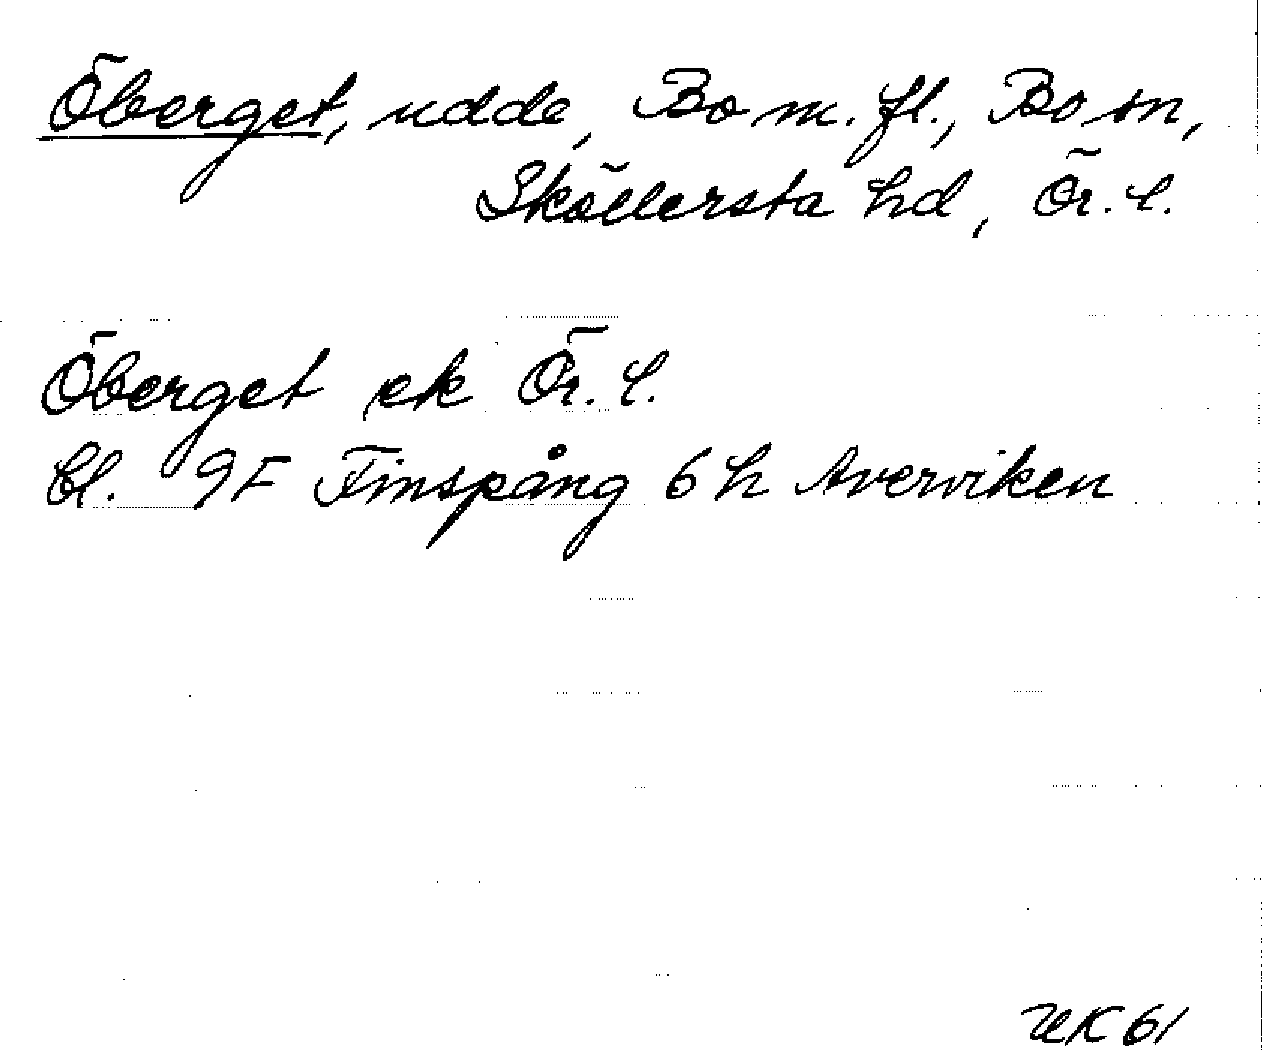 Öberget, udde, Bo m. fl., Bo sn,
Sköllersta hd, Ör. l.
Öberget ek Ör. l.
bl. 9F Finspång 6 h Averviken
UK 61